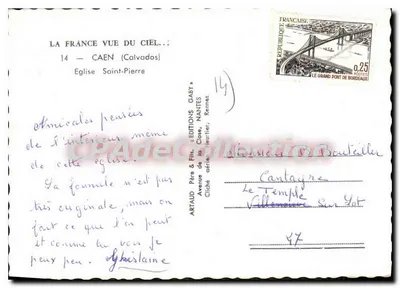 LA FRANCE VUE DU CIEL...
14 — CAEN (Calvados)
Eglise Saint-Pierre
Amicales pensées
de l'intérieur même
de cette église.
La formule n'est pas
très originale, mais on
fait ce que l'on peut
et comme tu vois je
peux peu. Ghislaine
ARTAUD Père & Fils « EDITIONS GABY »
Avenue de la Close, NANTES
Cliché aérien
14)
REPUBLIQUE FRANÇAISE
0,25
POSTES
LE GRAND PONT DE BORDEAUX
CPADeCollection
Cantayre
Le Temple
Villeneuve Sur Lot
47